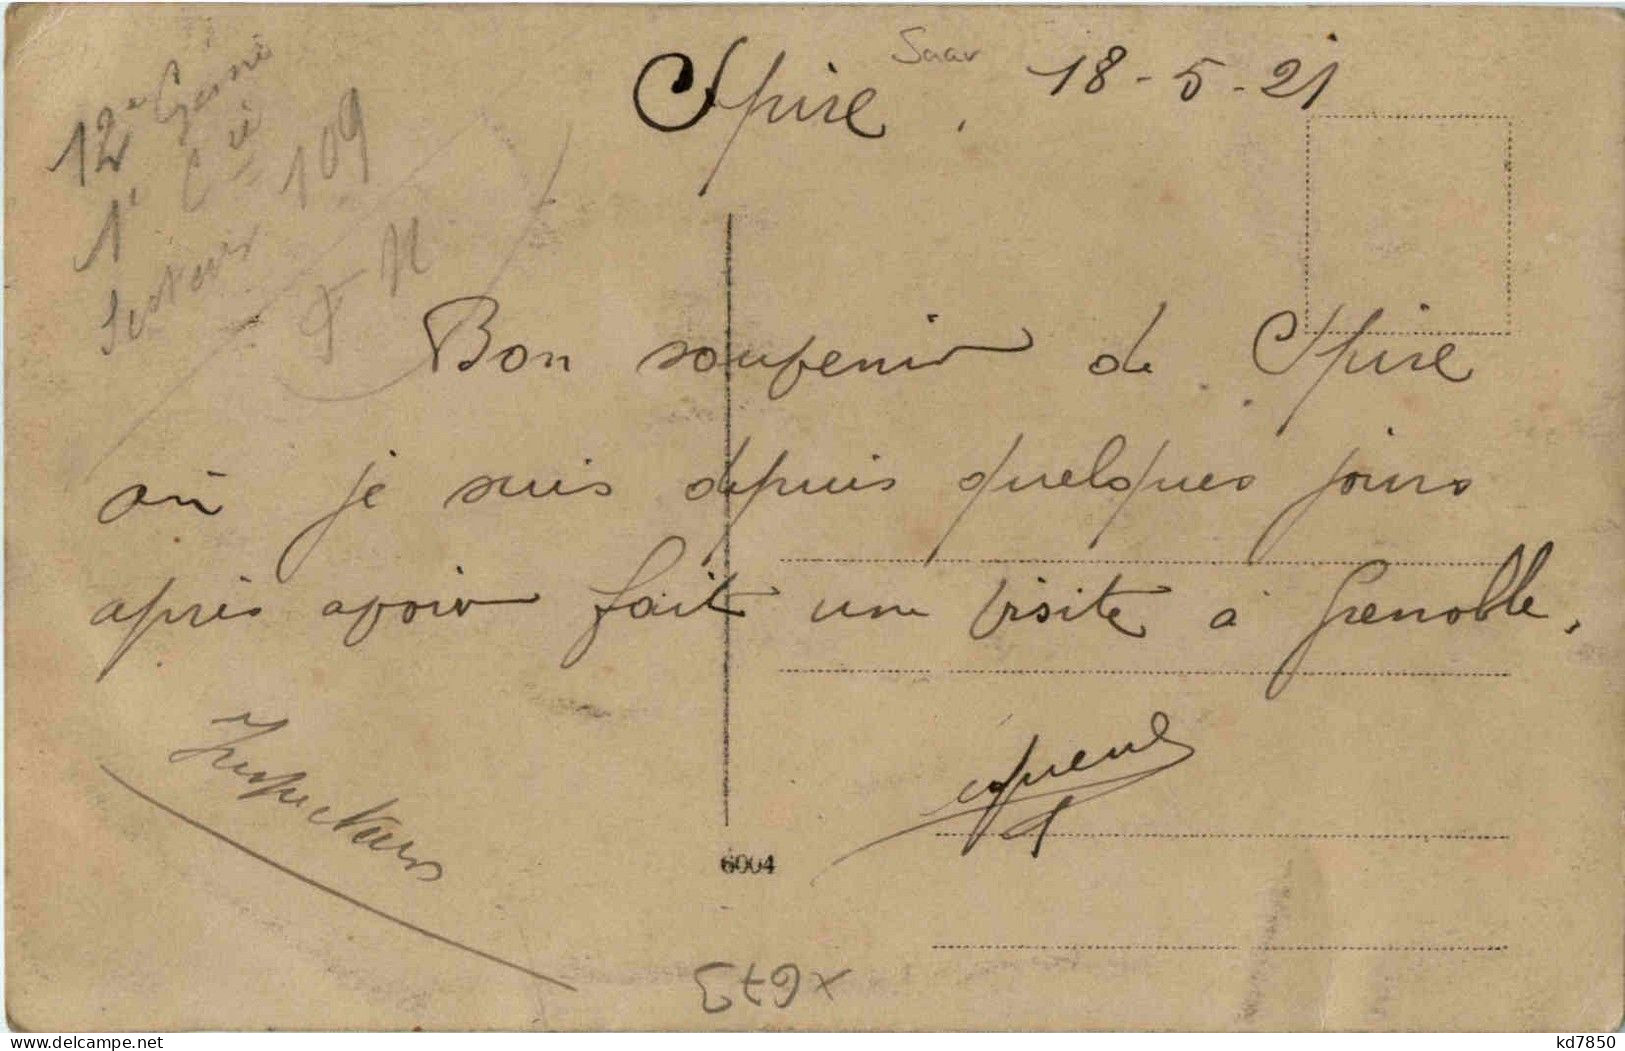 Saar
Spire, 18-5-21
12e Génie
1e Cie
Secteur 109
Bon souvenir de Spire
où je suis depuis quelques jours
après avoir fait une visite à Grenoble.
6004
x673
delcampe.net
kd7850